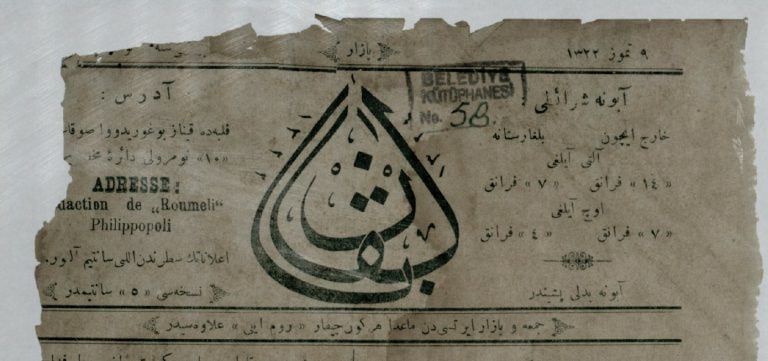 ۹ تموز ۱۳۲۲
بازار
BELEDİYE
KÜTÜPHANESİ
No. 58.
آبونه شرائطی :
خارج ایچون بلغارستانه
آلتی آیلغی
« ۱٤ » فرانق « ۷ » فرانق
اوچ آیلغی
« ۷ » فرانق « ٤ » فرانق
آبونه بدلی پشیندر
آدرس :
فلبه‌ده قناز بوغوریدووا صوقا
« ۱۰ » نومرولی دائرهٔ
ADRESSE:
daction de „Roumeli“
Philippopoli
اعلاناتك سطرندن اللی سانتیم آلور.
نسخه‌سی « ٥ » سانتیمدر
جمعه و بازار ایرتسی‌دن ماعدا هر كون چیقار « روم ایلی » علاوه‌سیدر